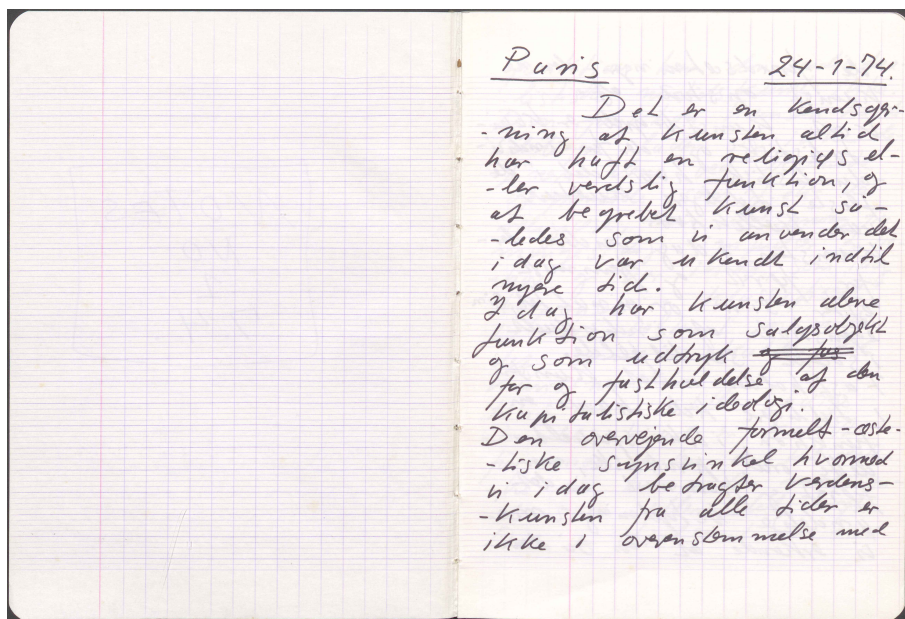 Paris 24-1-74.
Det er en kendsger-
-ning at kunsten altid
har haft en religiøs el-
-ler verdslig funktion, og
at begrebet kunst så-
-ledes som vi anvender det
idag var ukendt indtil
nyere tid.
I dag har kunsten alene
funktion som salgsobjekt
og som udtryk
for og fastholdelse af den
kapitalistiske ideologi.
Den overvejende formelt-æste-
-tiske synsvinkel hvormed
vi idag betragter verdens-
-kunsten fra alle tider er
ikke i overenstemmelse med